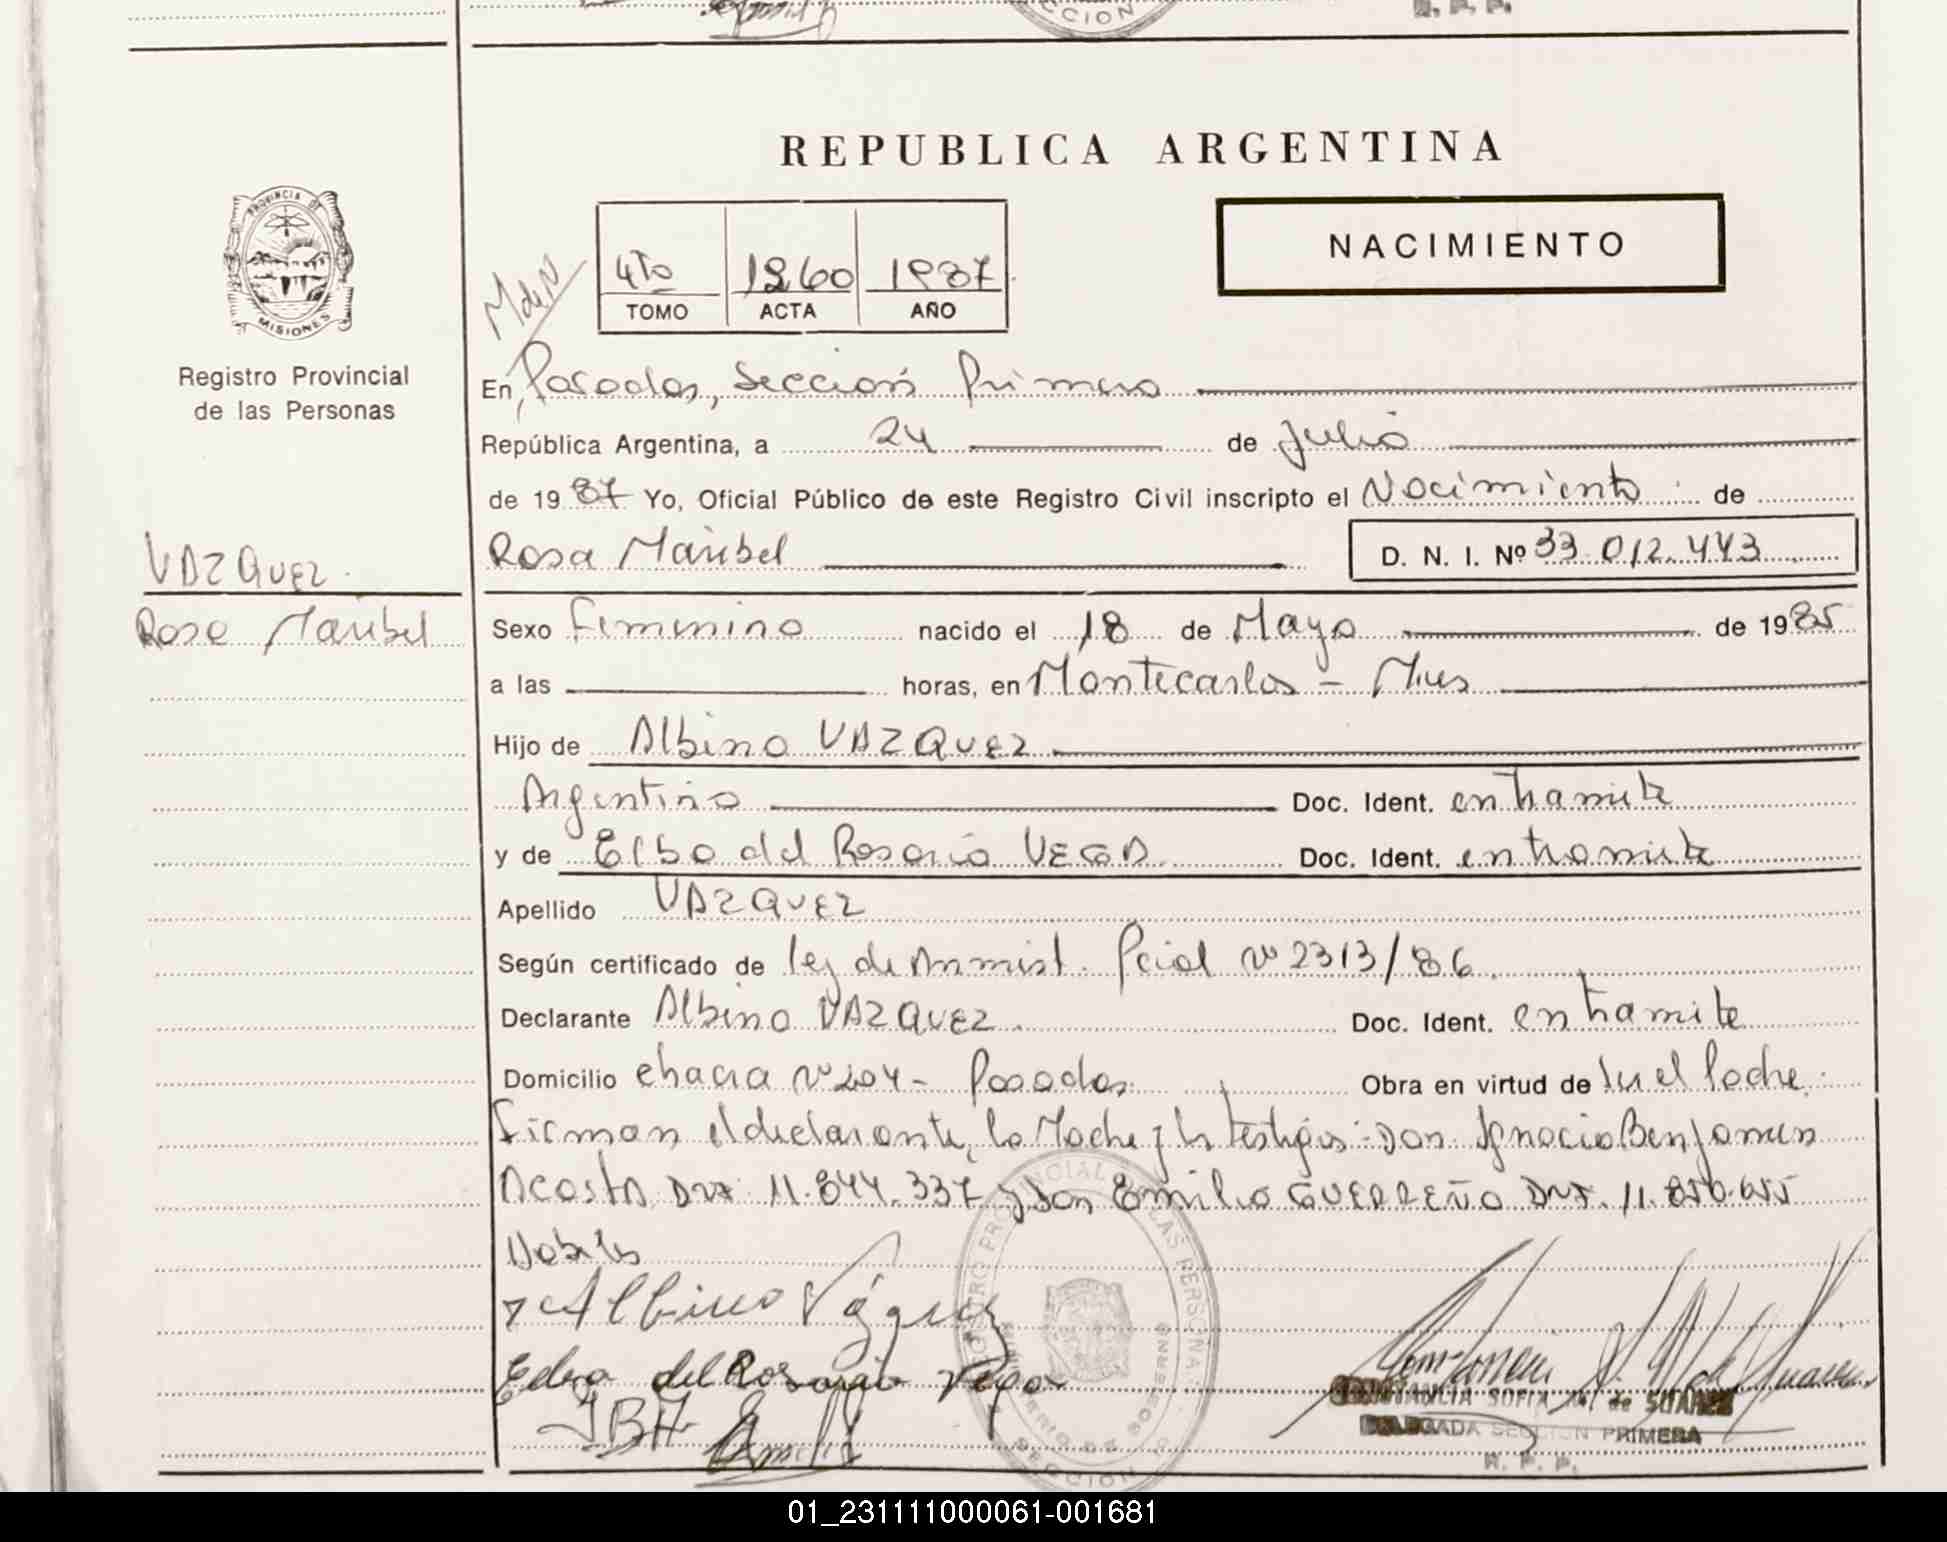 REPUBLICA ARGENTINA
PROVINCIA DE
MISIONES
Registro Provincial
de las Personas
NACIMIENTO
4To 1260 1987
TOMO ACTA AÑO
En, Posadas, Sección Primera
República Argentina, a 24 de Julio
de 1987 Yo, Oficial Público de este Registro Civil inscripto el Nacimiento de
Rosa Maribel D. N. I. Nº 33.012.443
VAZQUEZ
Rosa Maribel
Sexo Femenino nacido el 18 de Mayo de 1985
a las horas, en Montecarlos - Mnes
Hijo de Albino VAZQUEZ
Argentino Doc. Ident. en tramite
y de Elba del Rosario VEGA Doc. Ident. en tramite
Apellido VAZQUEZ
Según certificado de ley de Amnist. Pcial nº 2313/86
Declarante Albino VAZQUEZ Doc. Ident. en tramite
Domicilio chacra nº 204 - Posadas Obra en virtud de ser el Padre.
Firman el declarante, la Madre y los testigos: Don Ignacio Benjamin
ACOSTA DNI 11.844.337 y Don Emilio GUERREÑO DNI. 11.850.655
Albino Vázquez
del Rosario Vega
CONSTANCIA SOFIA M. de SUAREZ
DELEGADA SECCION PRIMERA
R. P. P.
01_231111000061-001681